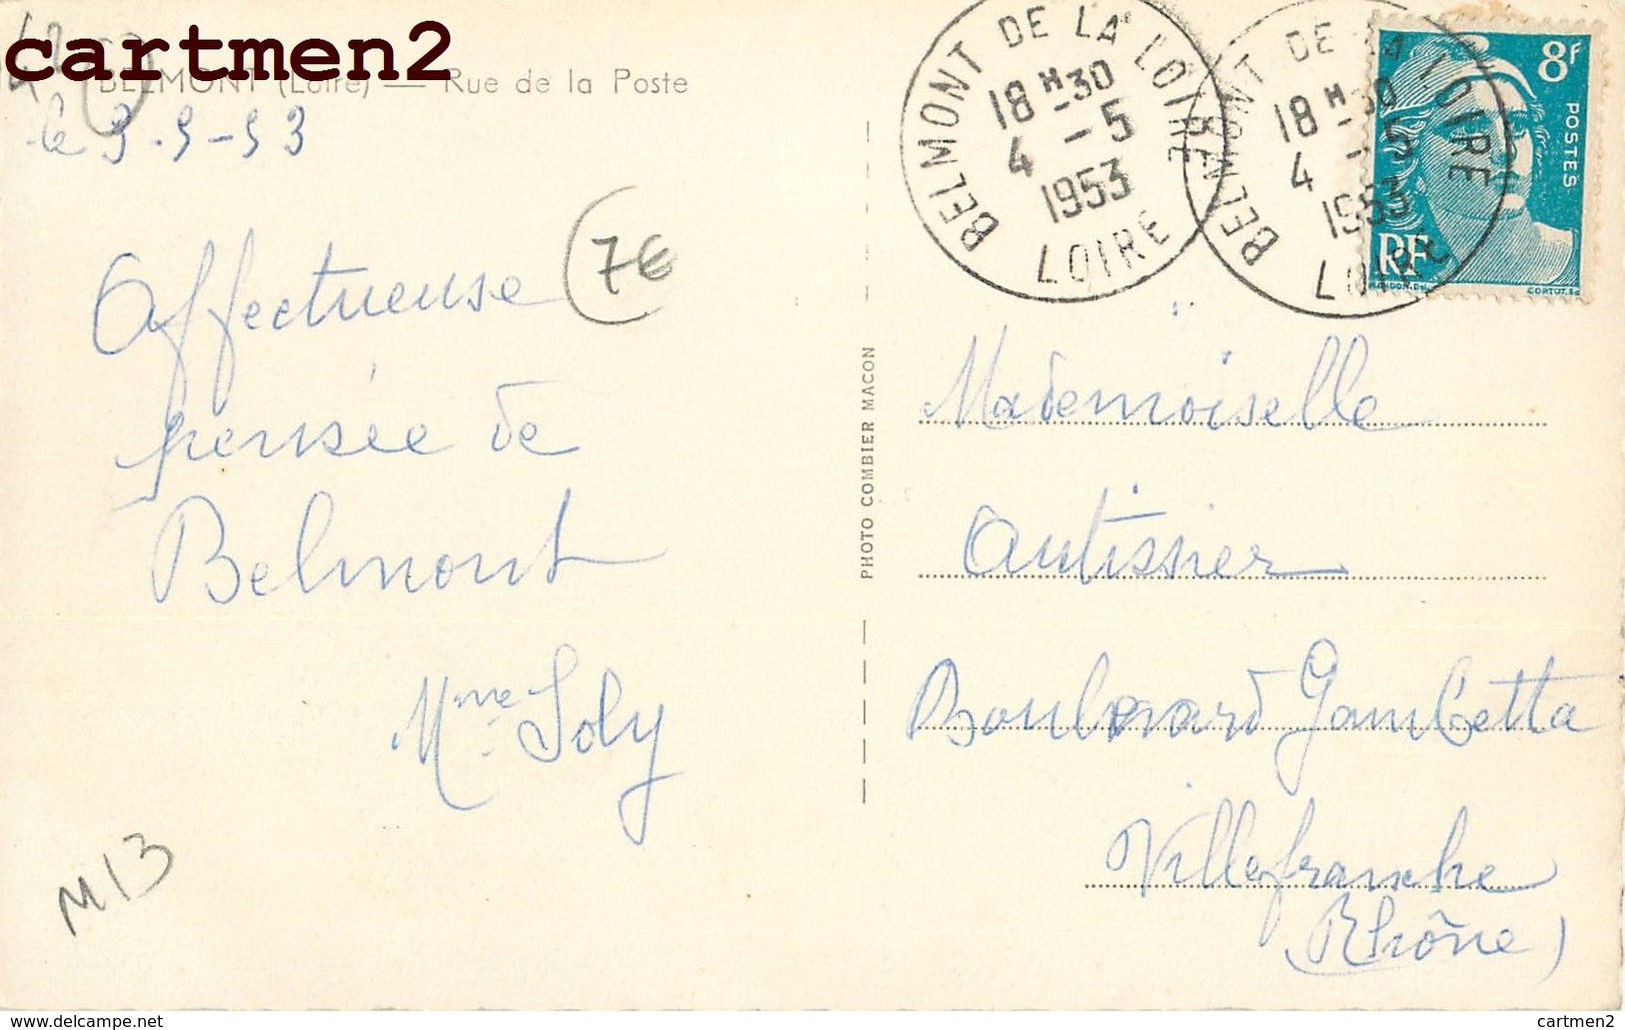 cartmen2
BELMONT (Loire) — Rue de la Poste
le 3-5-53
7€
Affectueuse
pensée de
Belmont
Mme Soly
M13
PHOTO COMBIER MACON
BELMONT DE LA LOIRE
18 H 30
4 - 5
1953
LOIRE
BELMONT DE LA LOIRE
18 H 30
4 - 5
1953
LOIRE
8F
POSTES
RF
CORTOT.Sc
Mademoiselle
Autissier
Boulevard Gambetta
Villefranche
(Rhône)
cartmen2
http://www.delcampe.net